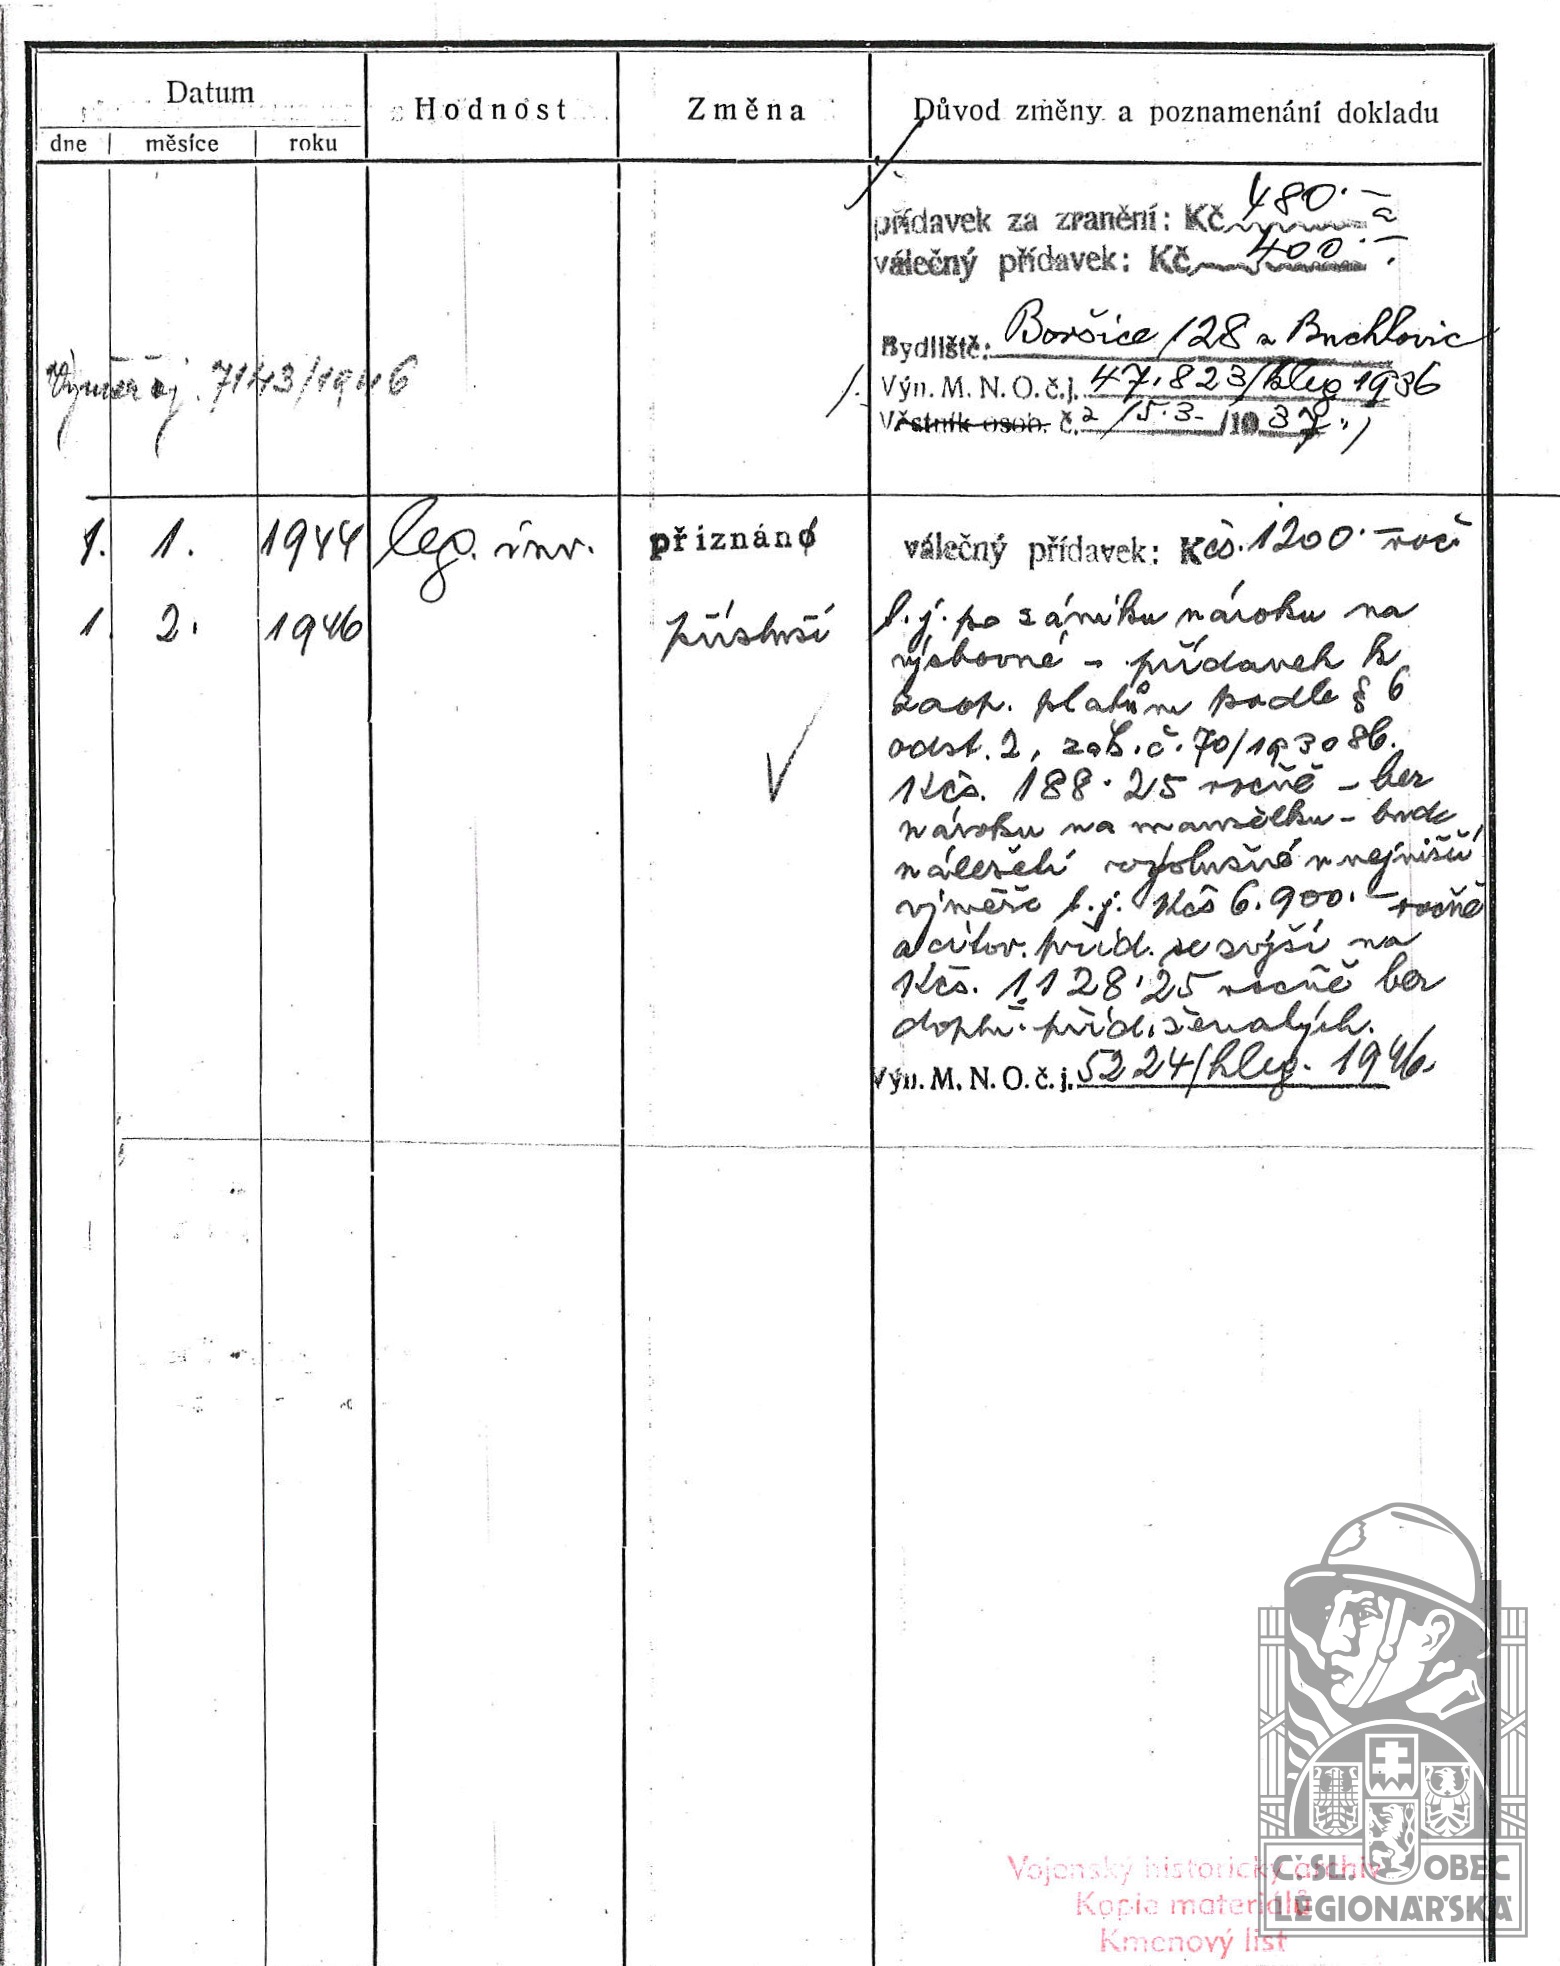 Datum
dne měsíce roku
Hodnost
Změna
Důvod změny a poznamenání dokladu
přídavek za zranění: Kč 480.— a
válečný přídavek: Kč 400.—
Bydliště: Boršice /128 u Buchlovic
Výměr čj. 7143/1946
Výn. M. N. O. č. j. 47.823/hleg 1936
Věstník osob. č. 2/15.3. /1937.
1. 1. 1944 leg. inv. přiznáno válečný přídavek: Kčs. 1200.— roč.
1. 2. 1946 přísluší t. j. po zániku nároku na
výchovné – přídavek k
zaop. platům podle § 6
odst. 2, zák. č. 70/1930 Sb.
Kčs. 188.25 ročně – bez
nároku na manželku – bude
náležeti v nejnižší
výměře t. j. Kčs 6.900.— ročně
a citov. příd. se zvýší na
Kčs. 1128.25 ročně bez
doplň. příd. ženatých.
Výn. M. N. O. č. j. 5224/hleg. 1946.
Vojenský historický archiv
Kopie materiálů
Kmenový list
ČSL. OBEC
LEGIONÁŘSKÁ